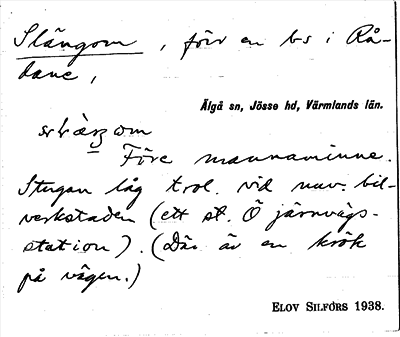 Slängom, förv en bs i Rå-
dane,
Älgå sn, Jösse hd, Värmlands län.
Före mannaminne.
Stugan låg trol. vid nuv. bil-
verkstaden (ett st. Ö järnvägs-
station). (Där är en krök
på vägen.)
ELOV SILFORS 1938.